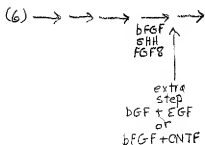 (6)
bFGF
SHH
FGF8
extra
step
bGF + EGF
or
bFGF + CNTF